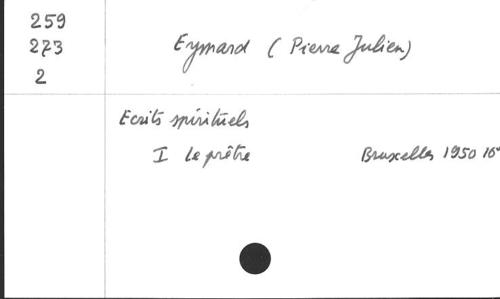 259
273
2
Eymard (Pierre Julien)
Ecrits spirituels
I Le prêtre Bruxelles 1950 16°